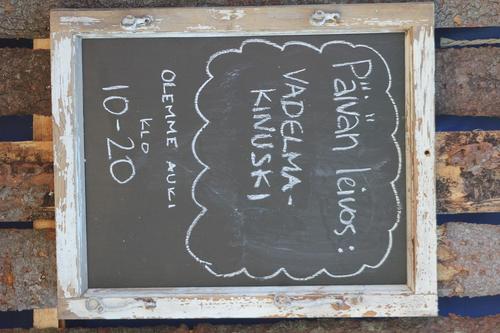 Päivän leivos:
VADELMA-
KINUSKI
OLEMME AUKI
KLO
10-20